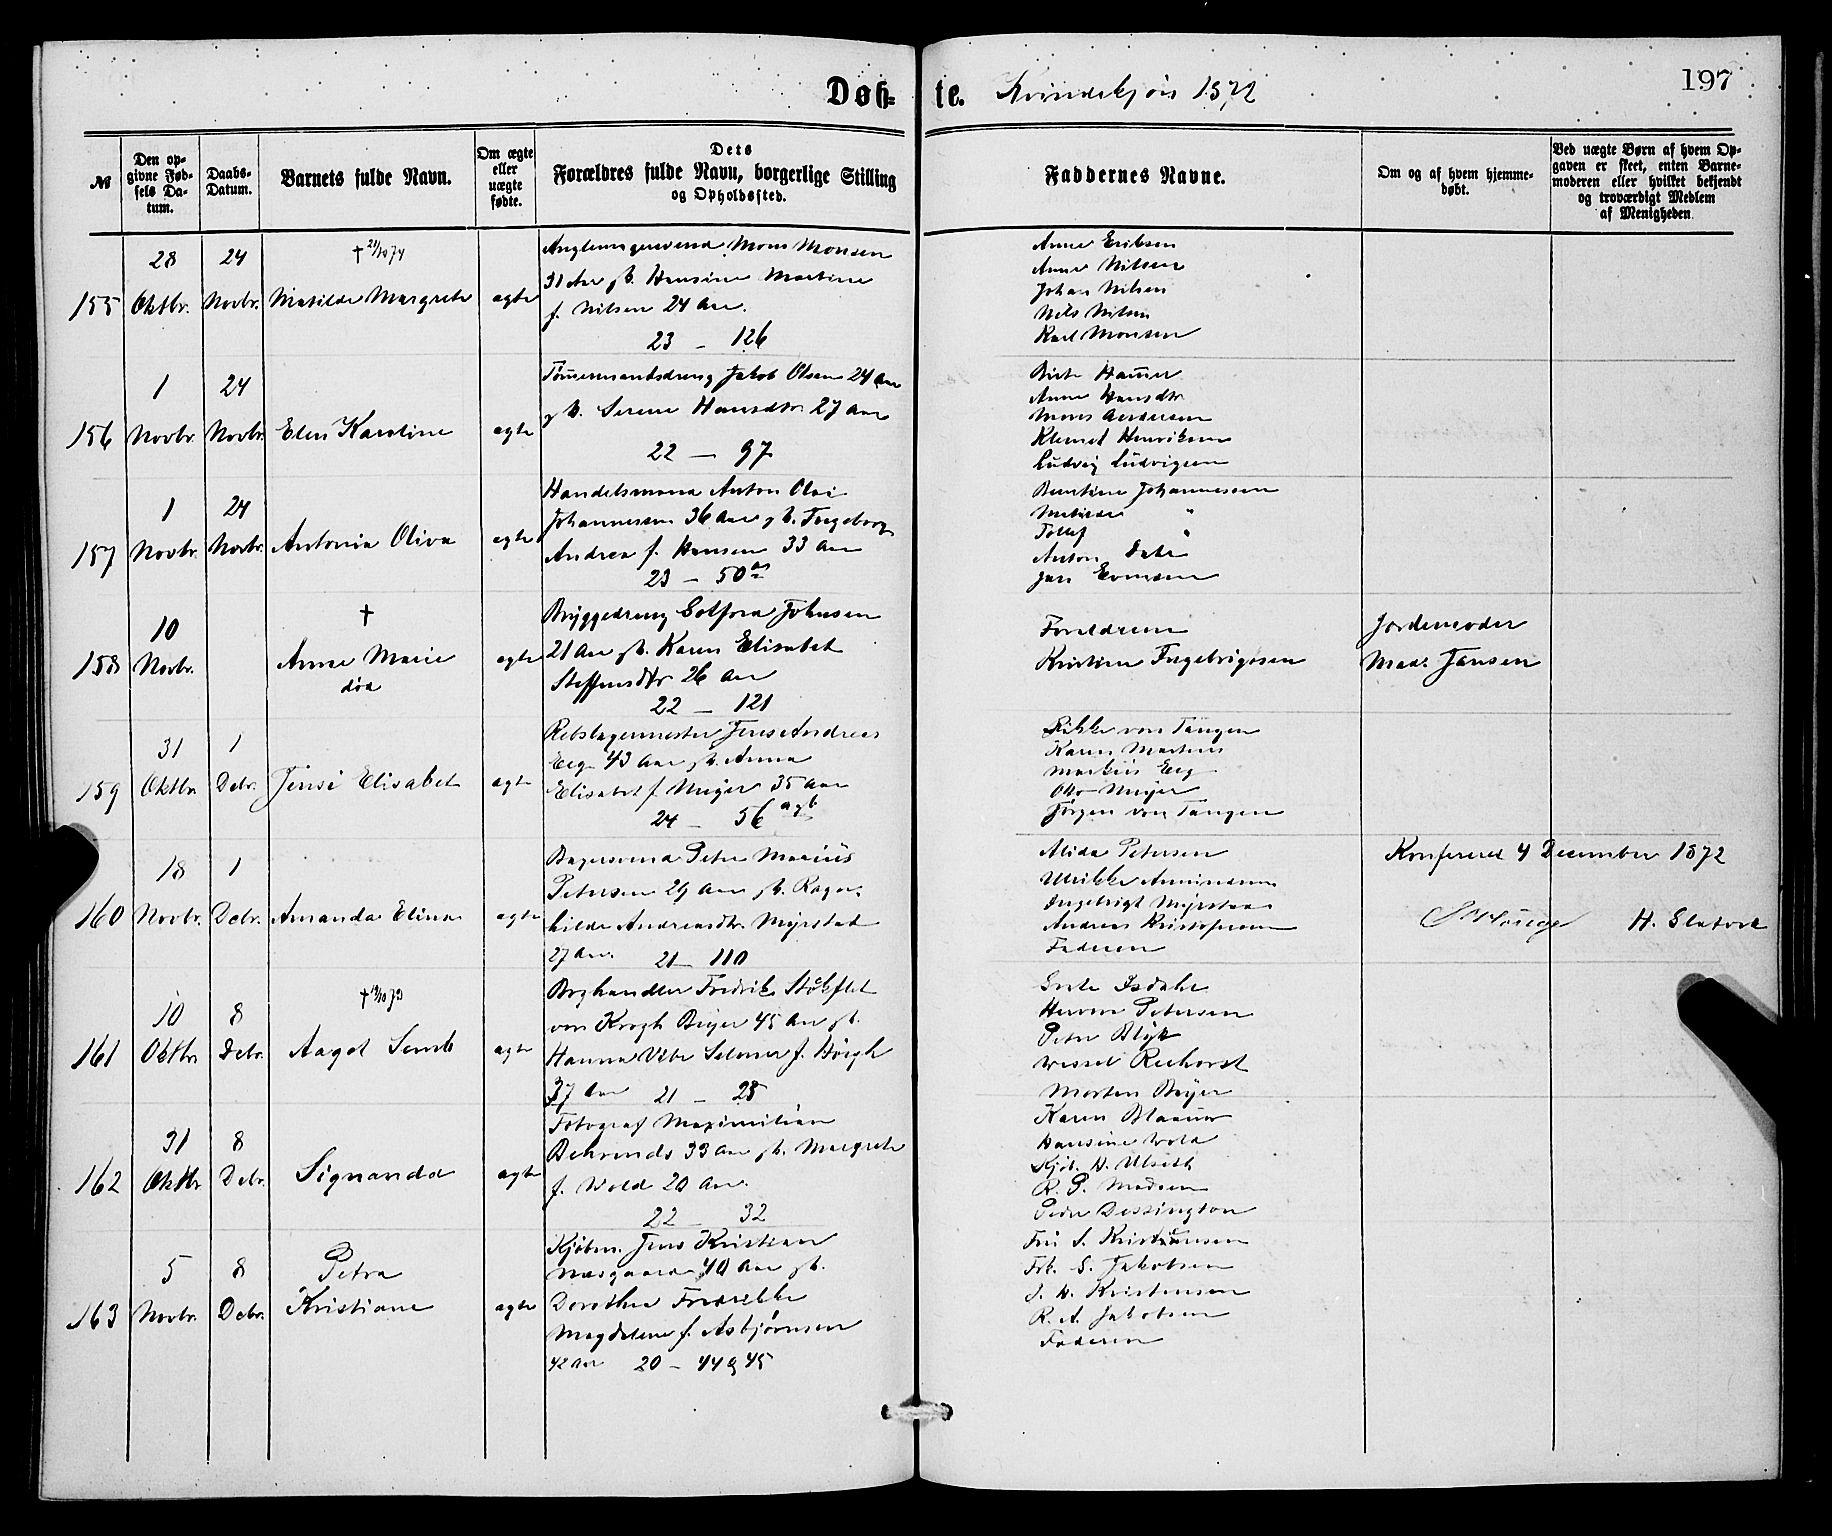 Døb- te. Kvindekjøn 1872
197
№
Den opgivne Fødsels Datum.
Daabs-Datum.
Barnets fulde Navn.
Om ægte eller uægte fødte.
Dets
Forældres fulde Navn, borgerlige Stilling
og Opholdssted.
Faddernes Navne.
Om og af hvem hjemmedøbt.
Ved uægte Børn af hvem Opgaven er skeet, enten Barnemoderen eller hvilket bekjendt og troværdigt Medlem af Menigheden.
155
28 Oktbr.
24 Novbr.
† 21/10 74
Matilde Margrete
ægte
Mons Monsen
31 Aar Hansine Martine
f. Nilsen 24 Aar.
23 – 126
Anne Eriksen
Anne Nilsen
Johan Nilsen
Nils Nilsen
Karl Monsen
156
1 Novbr.
24 Novbr.
Elen Karoline
ægte
Tømermandsdreng Jakob Olsen 24 Aar
Serine Hansdtr 27 Aar
22 — 97
Birte Hamer
Anne Hansdtr
Mons Andersen
Klemet Henriksen
Ludvig Ludvigsen
157
1 Novbr.
24 Novbr.
Antonia Oliva
ægte
Handelsmand Anton Olai
Johannessen 36 Aar Ingeborg
Andrea f. Hansen 33 Aar
23 – 50
Berntine Johannessen
Matilde "
Tollef "
Anton
Jan Evensen
158
10 Novbr.
†
Anne Marie
død
ægte
Bryggedreng Johnsen
21 Aar Karen Elisabet
Steffensdtr 26 Aar
22 — 121
Foreldrene
Kristine Ingebrigtsen
Jordemoder
Mad: Jansen
159
31 Oktbr.
1 Debr.
Jensi Elisabet
ægte
Rebslagermester Jens Andreas
Eeg 43 Aar Anna
Elisabet f. Meyer 35 Aar
24 – 56 a g b
Rikke von Tangen
Karen Martens
Markus Eeg
Otto Meyer
Jørgen von Tangen
160
18 Novbr.
1 Debr.
Amanda Elina
ægte
Bagersvend Peter Marius
Petersen 29 Aar Ragn-
hilde Andreasdtr. Myrstad
27 Aar. 21 – 110
Alida Petersen
Ulrikke Amundsen
Ingebrigt Myrstad
Andreas Kristofersen
Faderen
Konfereret 4 December 1872
161
10 Oktbr
8 Debr.
† 19/10 73
Aagot Semb
ægte
Boghandler Fredrik Stokflet
von Krogh Beyer 45 Aar
Hanna Vibe Selmer f. Høegh
37 Aar 21 – 28
Grete Isdahl
Herm Petersen
Peter Blytt
Wessel Reehorst
Morten Beyer
162
31 Oktbr
8 Debr.
Signanda
ægte
Fotograf Maximilian
Behrends 33 Aar Margrete
f. Wold 20 Aar.
22 – 32
Karen Blaauw
Hansine Wold
Kjøb. H. Ulseth
R. P. Madsen
Peder Dessington
163
5 Novbr.
8 Debr.
Petra
Kristiane
ægte
Kjøbm. Jens Kristian
Næsgaard 40 Aar
Dorothea Fredrikke
Magdalene f. Asbjørnsen
42 Aar 20 – 44 & 45
Fru S. Kristensen
Frk. S. Jakobsen
J. H. Kristensen
R. A. Jakobsen
Faderen